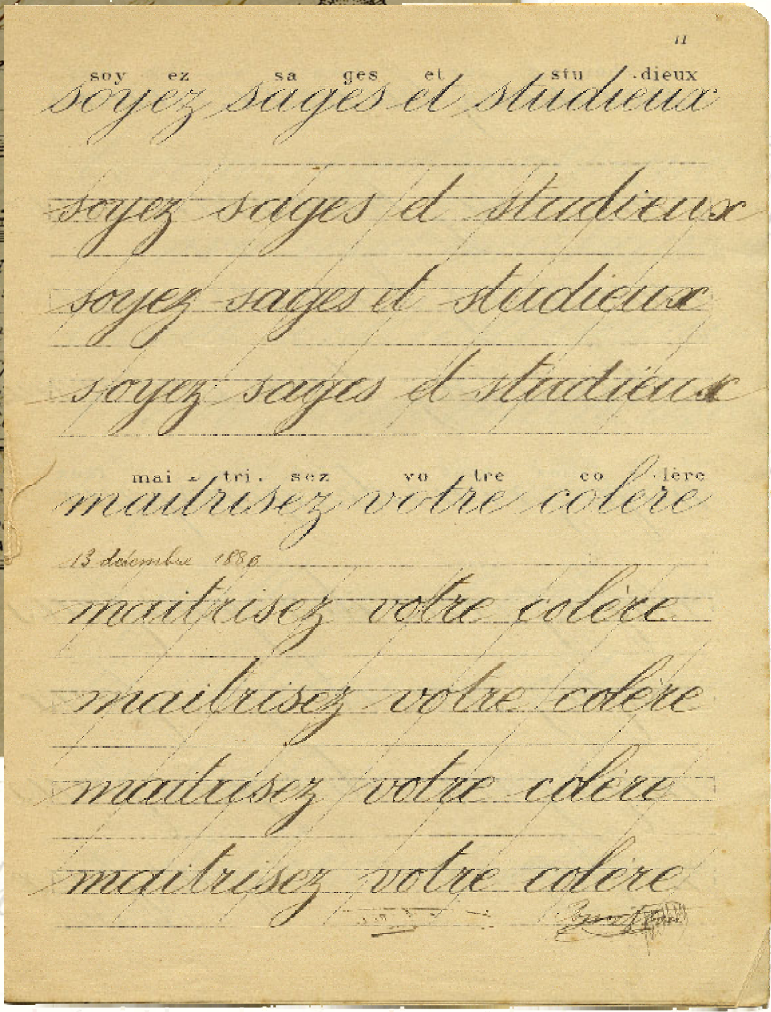 11
soy ez sa ges et stu dieux
soyez sages et studieux
soyez sages et studieux
soyez sages et studieux
soyez sages et studieux
mai tri sez vo tre co lère
maitrisez votre colère
13 décembre 1886
maitrisez votre colère
maitrisez votre colère
maitrisez votre colère
maitrisez votre colère